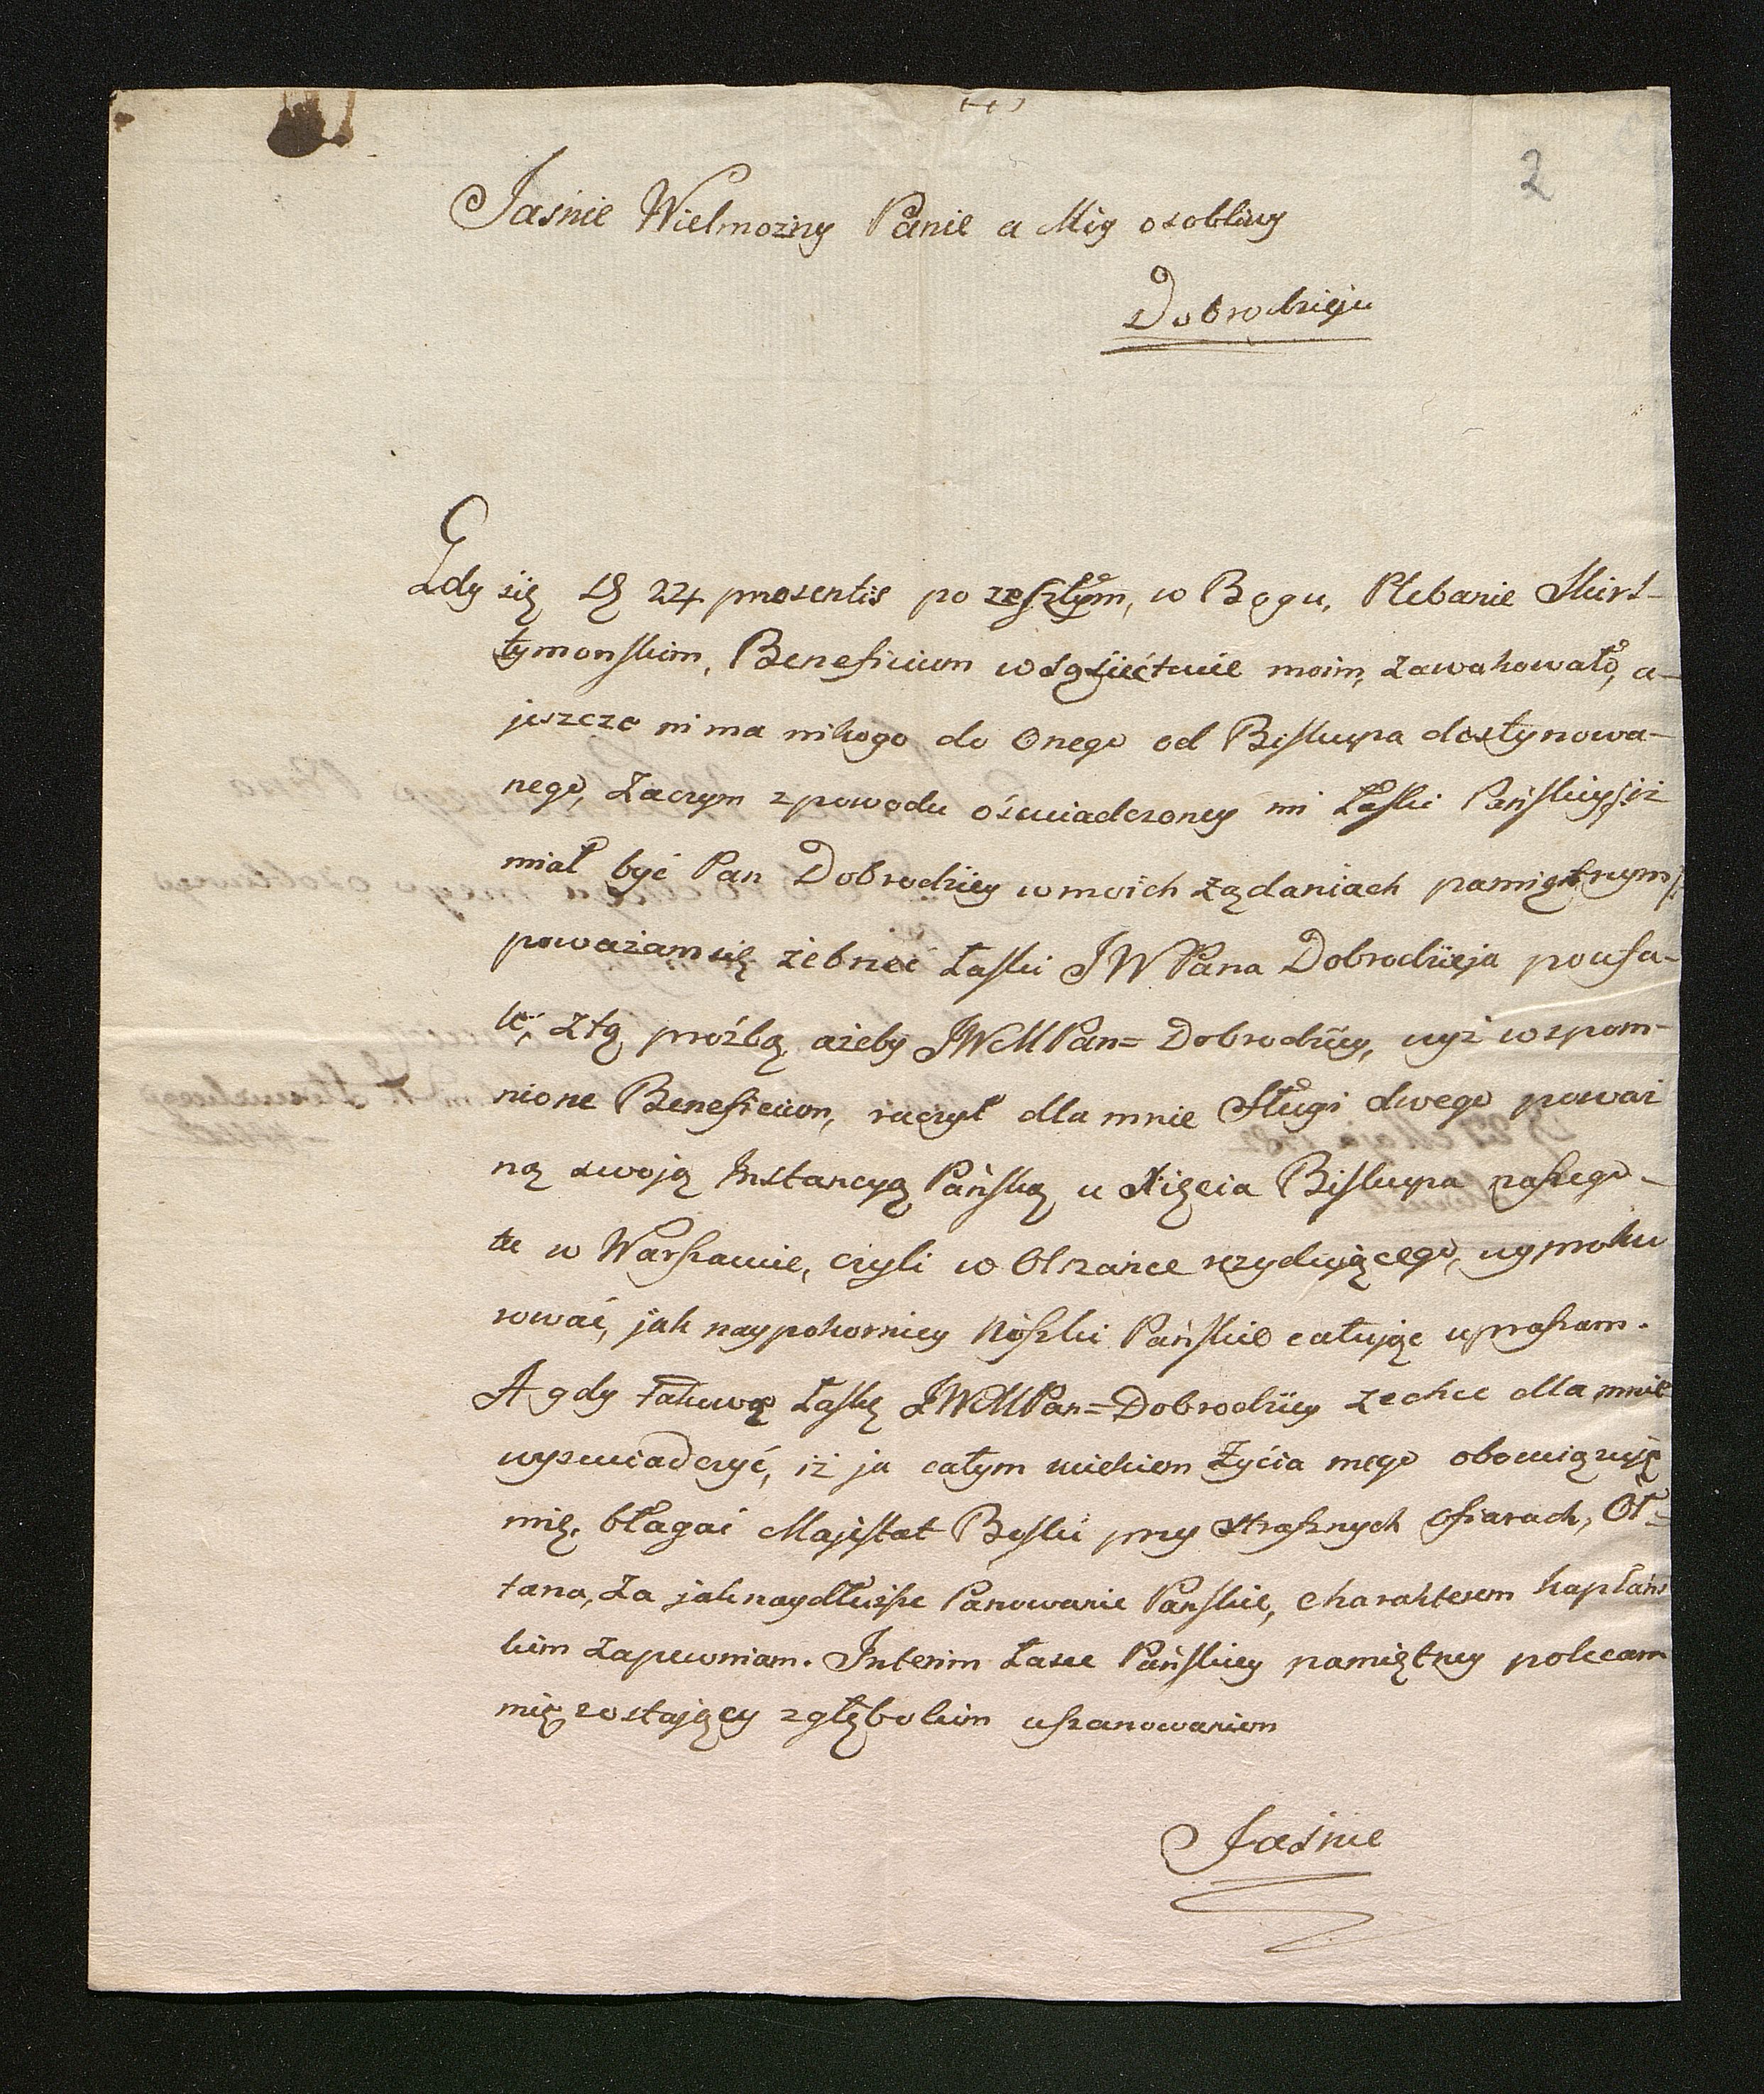 2
Jasnie Wielmożny Panie a Mig osobliwy
Dobrodzieju
Gdy się D 24 presentis po zeszłym, w Bogu, Plebanie Skirs-
tymonskim, Beneficium w sąsiectwie moim, zawakowało, a
jeszcze nima nikogo do onego od Biskupa destynowa-
nego, Zaczym z powodu oświadczoney mi Łaski Pańskiey/: iż
miał być Pan Dobrodziey w moich żądaniach pamiętnym/:
poważam się żebrać Łaski JW Pana Dobrodzieja poufa-
le, z tą prośbą ażeby JWMPan= Dobrodziey, wyż wspom-
nione Beneficium, raczył dla mnie Sługi swego poważ
ną swoją Instancyą Pańską u Xięcia Biskupa naszego
tu w Warszawie, czyli w Olszance rezydującego, wyproku
rować, jak naypokorniey Nóżki Pańskie całując upraszam.
A gdy takową Łaskę JWMPan= Dobrodziey zechce dla mnie
wyswiadczyć, iż ja całym wiekiem Życia mego obowiązuję
mię, błagać Majestat Boski przy strasznych ofiarach, Oł=
tarza, Za jak naydłuższe Panowanie Pańskie, charakterem kapłańs
kim zapewniam. Interim Łasce Pańskiey pamiętney polecam
mię zostający z głębokim uszanowaniem
Jaśnie